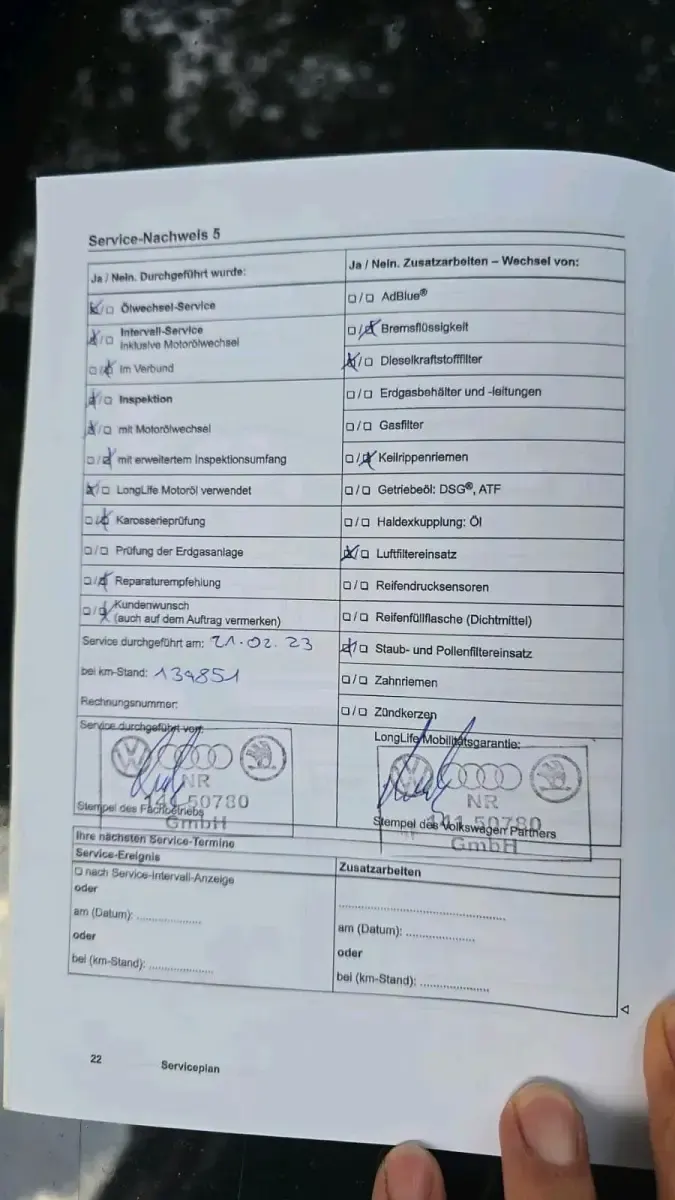 Service-Nachweis 5
Ja / Nein. Durchgeführt wurde:
Ölwechsel-Service
Intervall-Service
inklusive Motorölwechsel
im Verbund
Inspektion
mit Motorölwechsel
mit erweitertem Inspektionsumfang
LongLife Motoröl verwendet
Karosserieprüfung
Prüfung der Erdgasanlage
Reparaturempfehlung
Kundenwunsch
(auch auf dem Auftrag vermerken)
Service durchgeführt am: 21.02.23
bei km-Stand: 139851
Rechnungsnummer:
Service durchgeführt von:
NR
50780
GmbH
Stempel des Fachbetriebs
Ja / Nein. Zusatzarbeiten – Wechsel von:
AdBlue®
Bremsflüssigkeit
Dieselkraftstofffilter
Erdgasbehälter und -leitungen
Gasfilter
Keilrippenriemen
Getriebeöl: DSG®, ATF
Haldexkupplung: Öl
Luftfiltereinsatz
Reifendrucksensoren
Reifenfüllflasche (Dichtmittel)
Staub- und Pollenfiltereinsatz
Zahnriemen
Zündkerzen
LongLife Mobilitätsgarantie:
NR
141 50780
GmbH
Stempel des Volkswagen Partners
Ihre nächsten Service-Termine
Service-Ereignis
nach Service-Intervall-Anzeige
oder
am (Datum): ....................
oder
bei (km-Stand): ....................
Zusatzarbeiten
am (Datum): ....................
oder
bei (km-Stand): ....................
22 Serviceplan